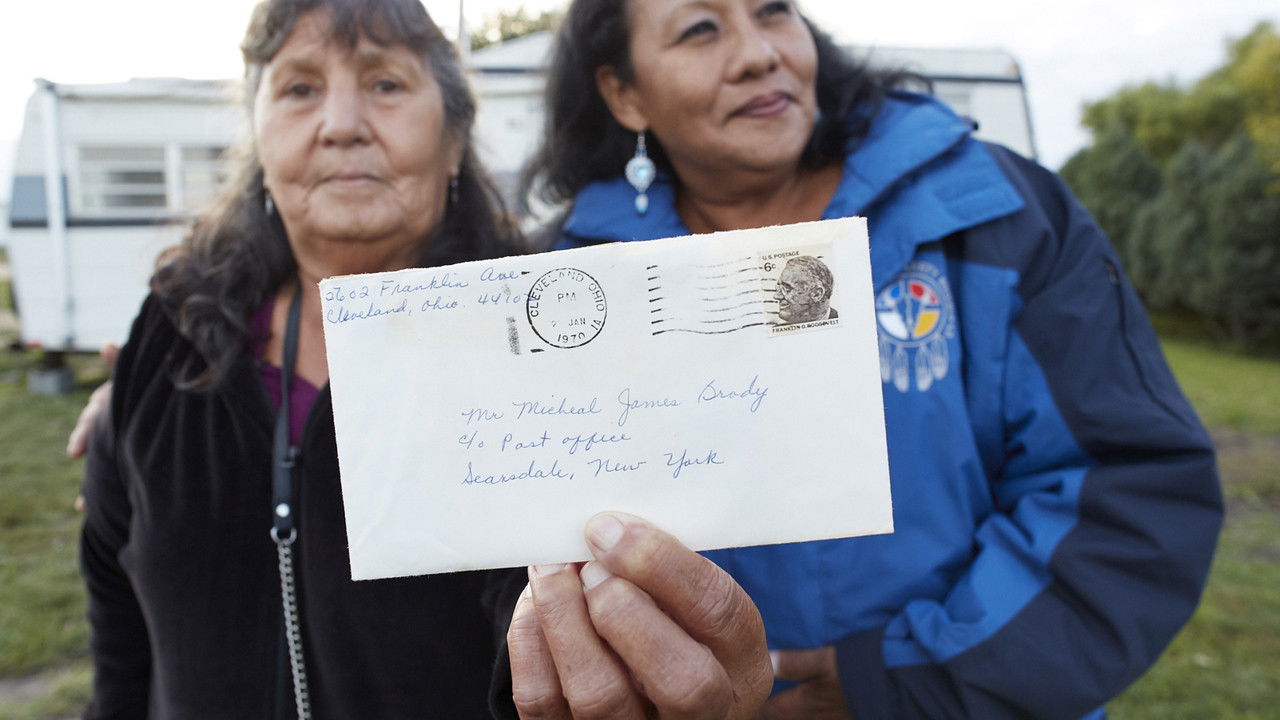 2602 Franklin Ave
Cleveland, Ohio. 4410
CLEVELAND OHIO
PM
2 JAN
1970
U.S. POSTAGE
6c
FRANKLIN D. ROOSEVELT
Mr Micheal James Brody
c/o Post office
Scarsdale, New York